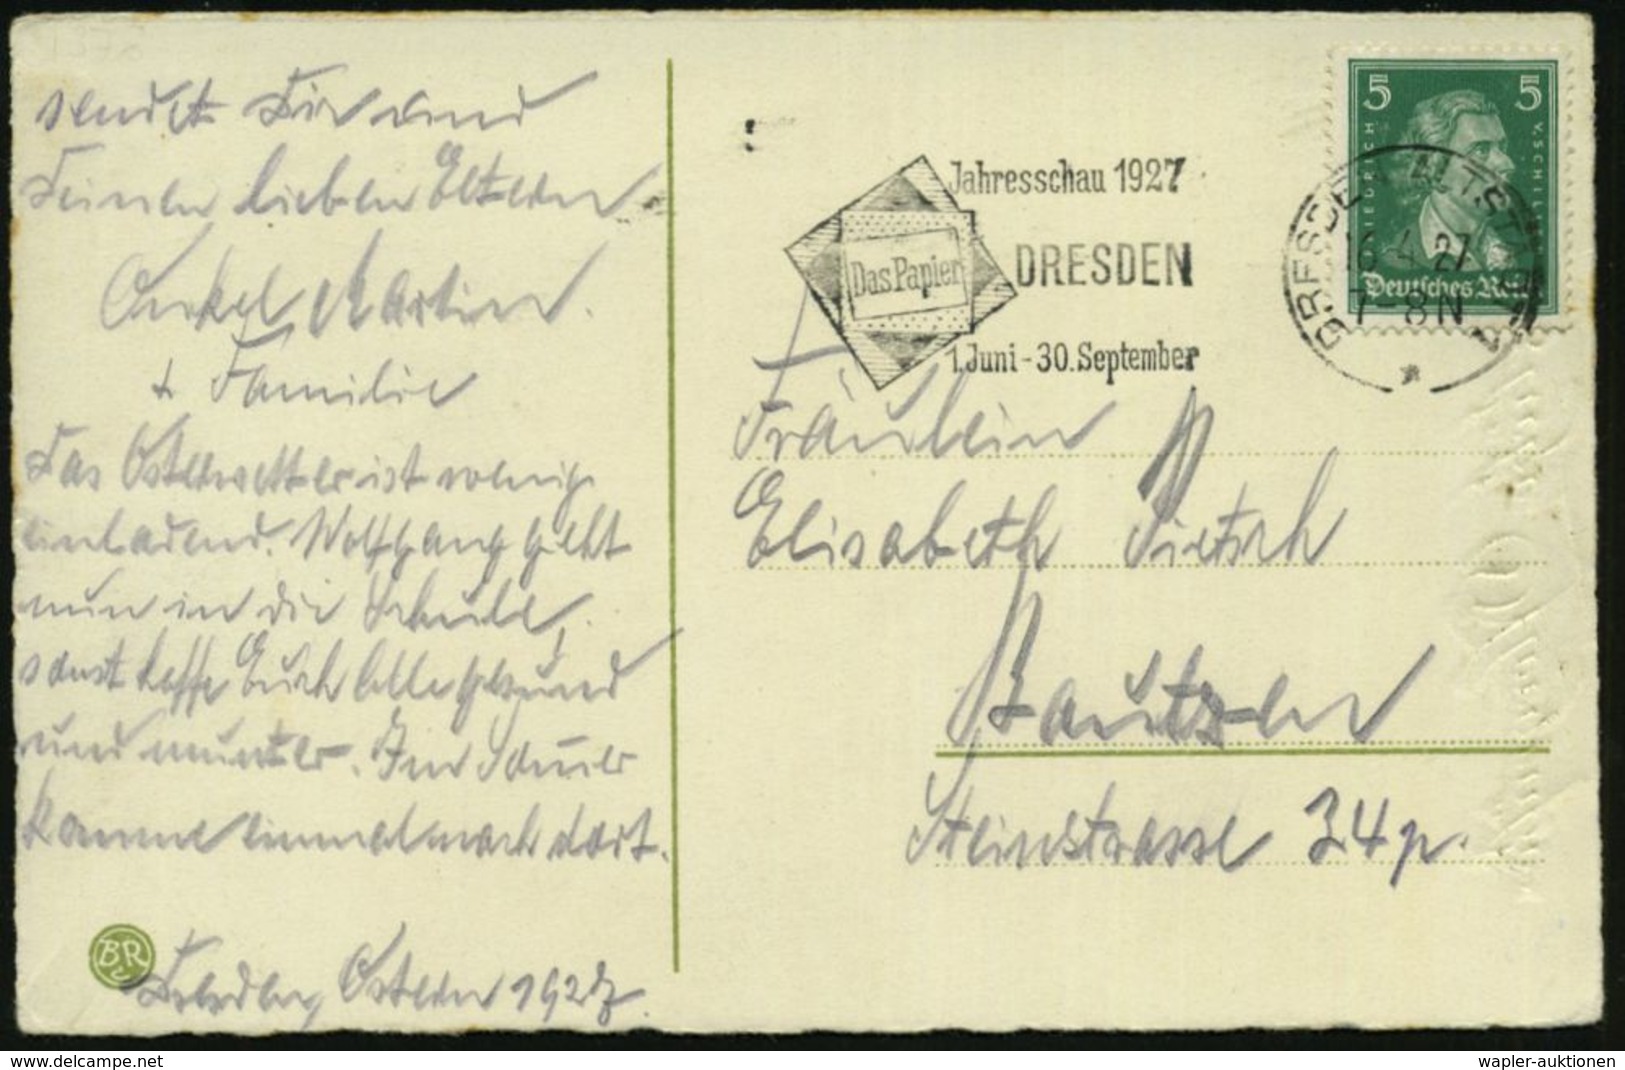 sendet Dir und
Deinen lieben Eltern
Onkel Martin.
+ Familie
Das Osterwetter ist wenig
einladend. Wolfgang geht
nun in die Schule,
sonst hoffe Euch alle gesund
und munter. Im
komme einmal nach dort.
Dresden, Ostern 1927.
BR
Jahresschau 1927
Das Papier
DRESDEN
1. Juni - 30. September
5 5
FRIEDRICH V. SCHILLER
Deutsches Reich
DRESDEN ALTST.
16.4.27
7-8 N
*
Fräulein
Elisabeth Pietsch
Bautzen
Steinstrasse 34 p.
delcampe.net
wapler-auktionen